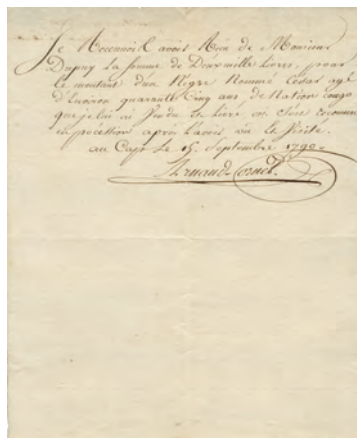 Je Reconnois avoir Recu de Monsieur
Dupuy La somme de Deux mille Livres, pour
Le montant d'un Negre Nommé César agé
d'Environ quarante Cinq ans de Nation congo
que je lui ai Vendu et Livré, en
En procession après L'avoir vu et Visité.
au Cap Le 15. Septembre 1790.
Arnaud Cornet